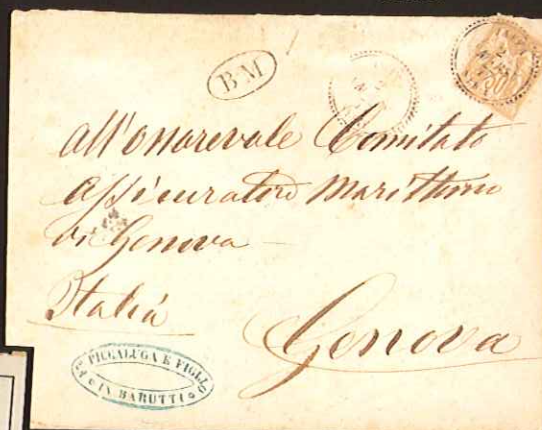 B M
All'Onorevole Comitato
Assicuratore Marittimo
di Genova
Italia
Genova
PICCALUGA E FIGLIO
IN BARUTTI